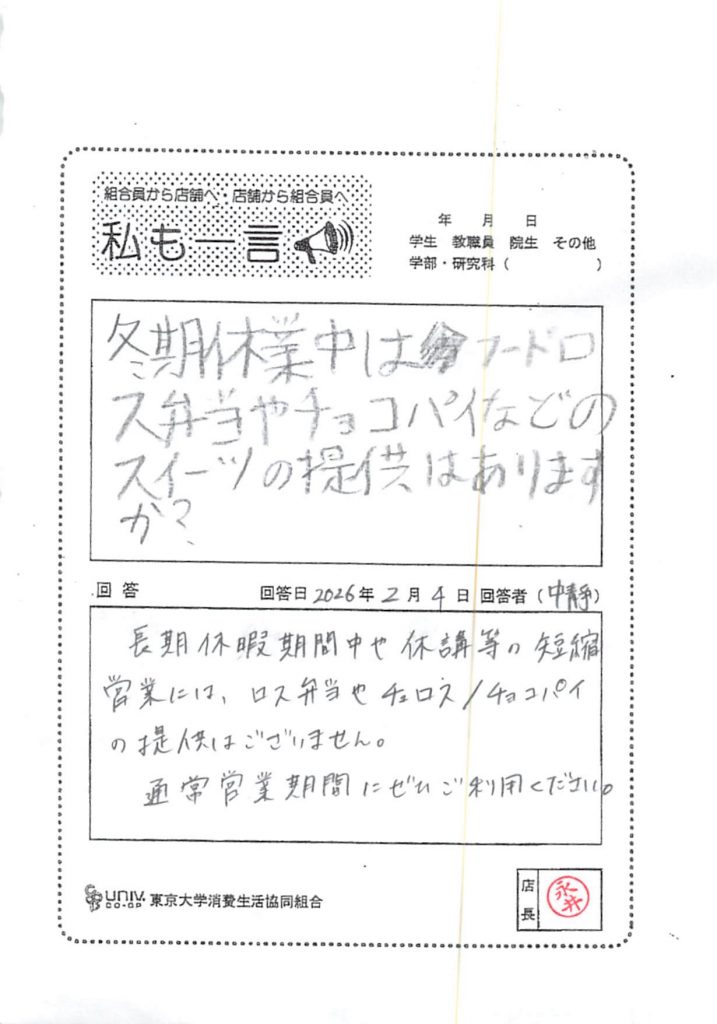 組合員から店舗へ・店舗から組合員へ
私も一言
年 月 日
学生 教職員 院生 その他
学部・研究科( )
冬期休業中はフードロ
ス弁当やチョコパイなどの
スイーツの提供はあります
か?
回答 回答日2026年2月4日 回答者(中静)
長期休暇期間中や休講等の短縮
営業には、ロス弁当やチュロス/チョコパイ
の提供はございません。
通常営業期間にぜひご利用ください。
CO-OP UNIV. CO-OP 東京大学消費生活協同組合
店長
永井